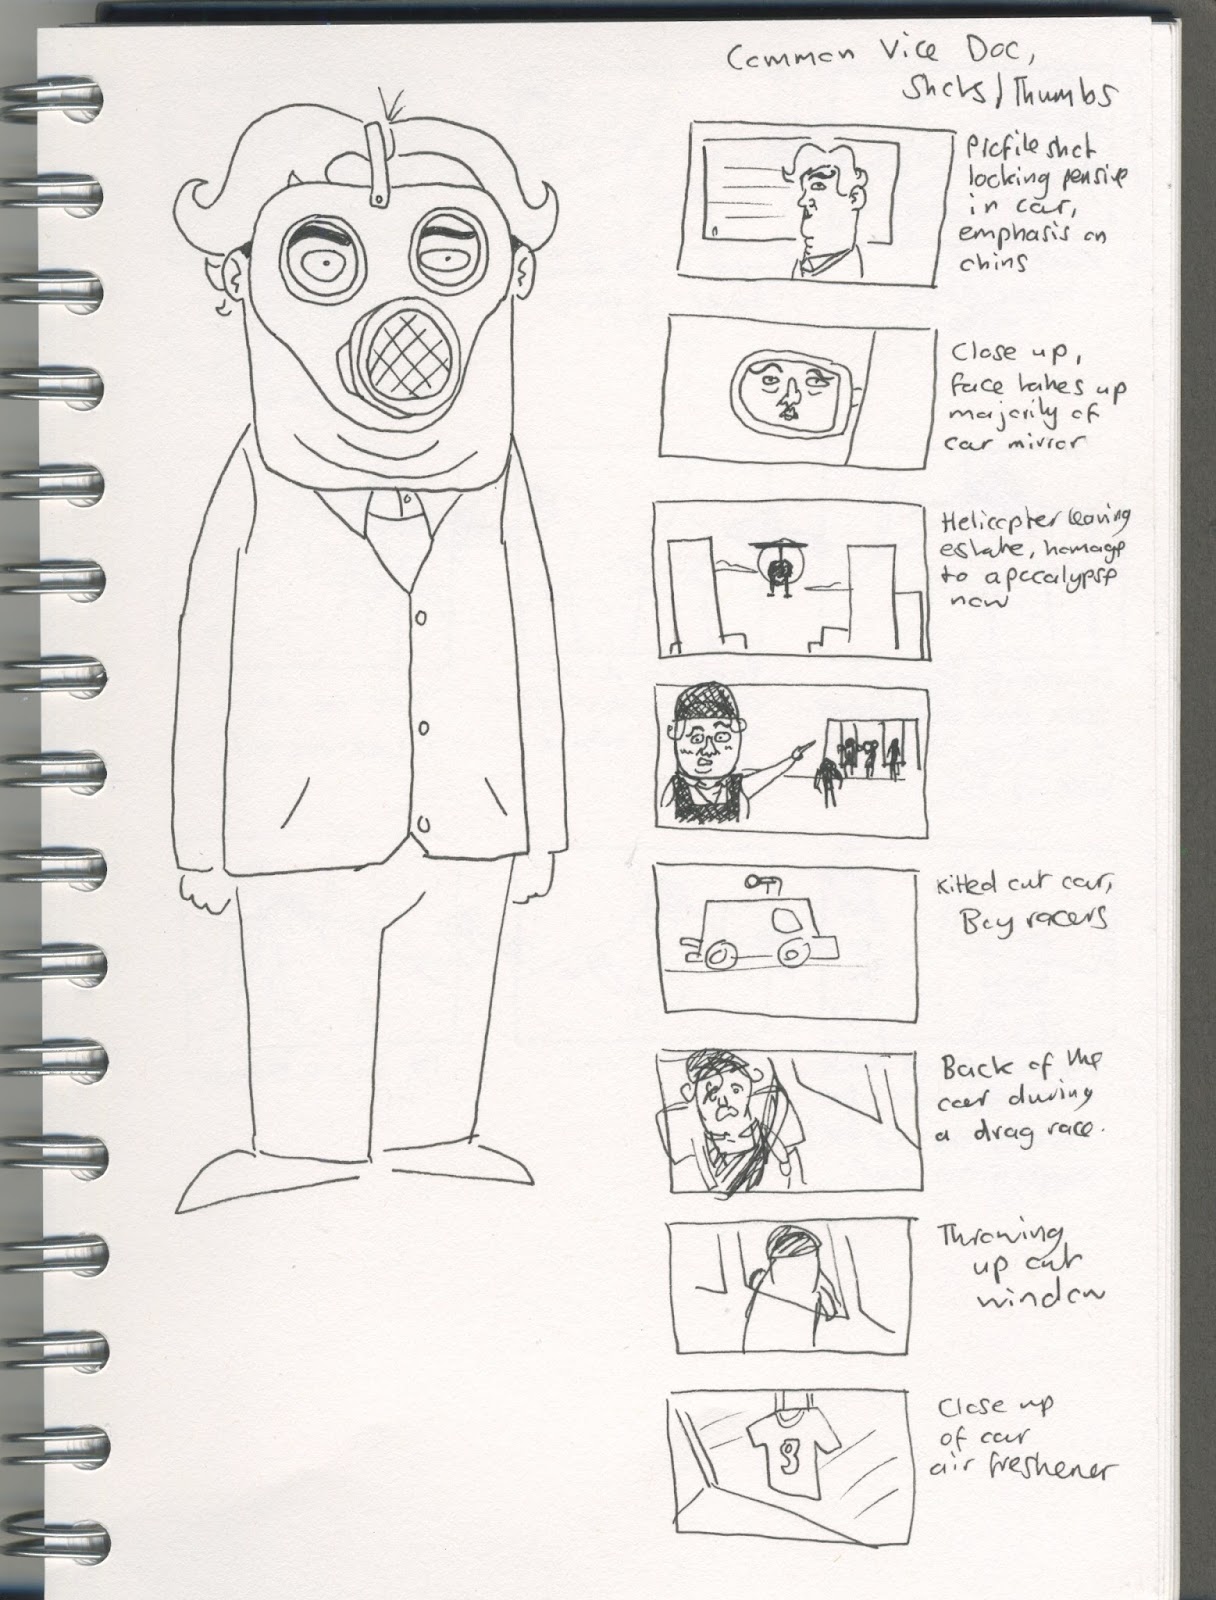 Common Vice Doc,
Shots/Thumbs
Profile shot
looking pensive
in car,
emphasis on
chins
Close up,
face takes up
majority of
car mirror
Helicopter leaving
estate, homage
to apocalypse
now
Kitted out car,
Boy racers
Back of the
car during
a drag race.
Throwing
up out
window
8
Close up
of car
air freshener